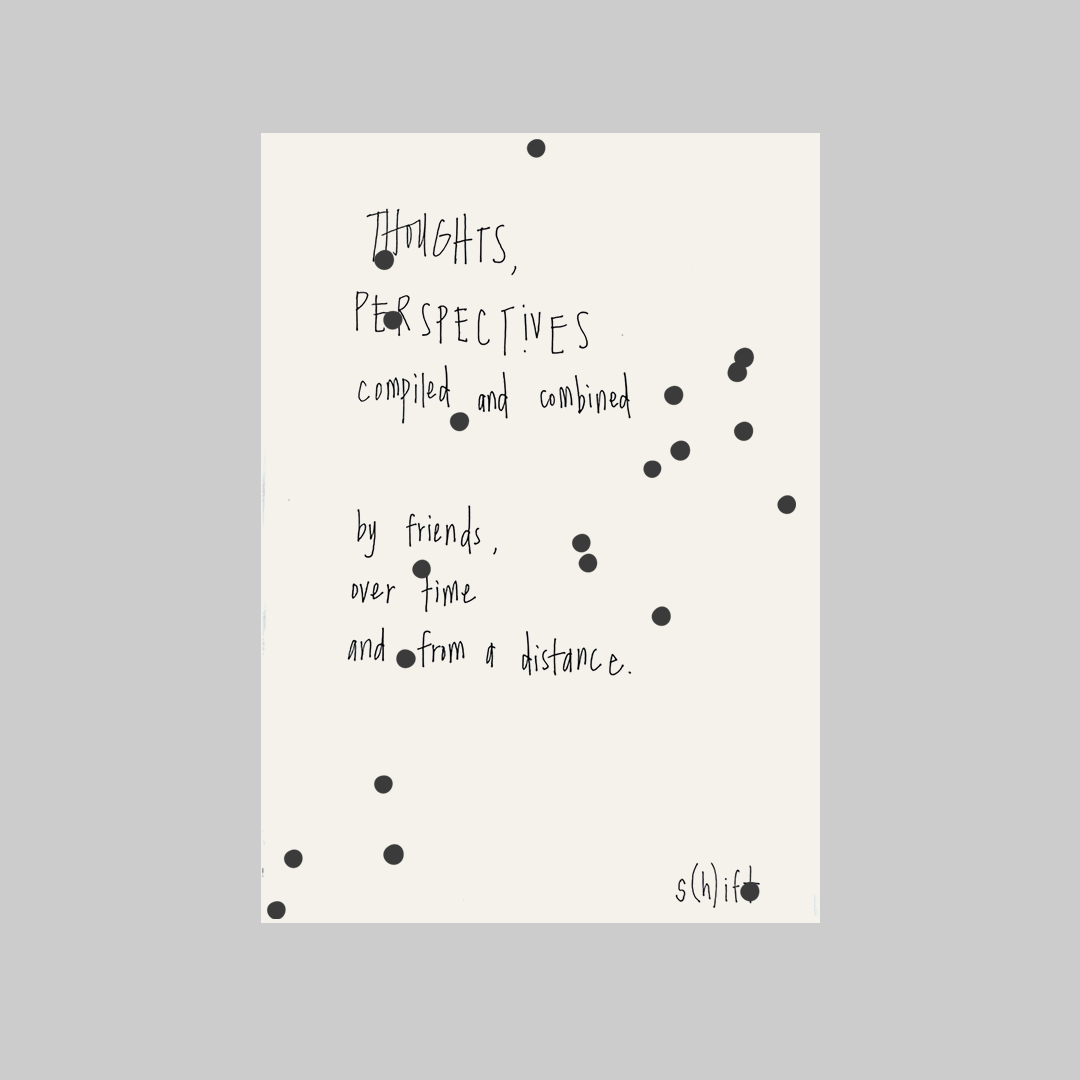 THOUGHTS,
PERSPECTIVES
compiled and combined
by friends,
over time
and from a distance.
s(h)ift